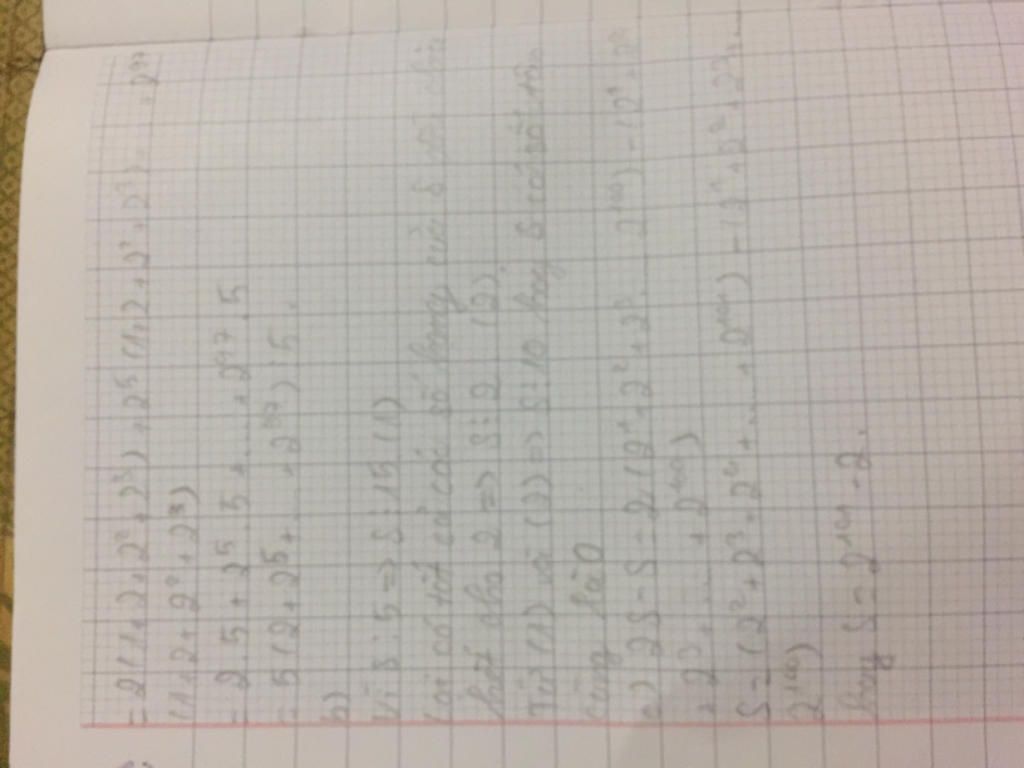 = 2(1+2+2²+2³)+2⁵(1+2+2²+2³)+...+2⁹⁷
(1+2+2²+2³)
= 2.5+2⁵.5+...+2⁹⁷.5
= 5(2+2⁵+...+2⁹⁷) 5.
b)
Vì S ⋮ 5 => S ⋮ 15 (1)
Lại có tất cả các số hạng của S
hết cho 2 => S ⋮ 2 (2)
Từ (1) và (2) => S ⋮ 10 hay S có
cùng là 0
c) 2S - S = 2(2¹+2²+2³ 2¹⁰⁰) - (2¹+2²
+ 2³+...+2¹⁰⁰)
S = (2²+2³+2⁴+...+2¹⁰¹) - (2¹+2²+2³
2¹⁰⁰)
hay S = 2¹⁰¹ - 2.